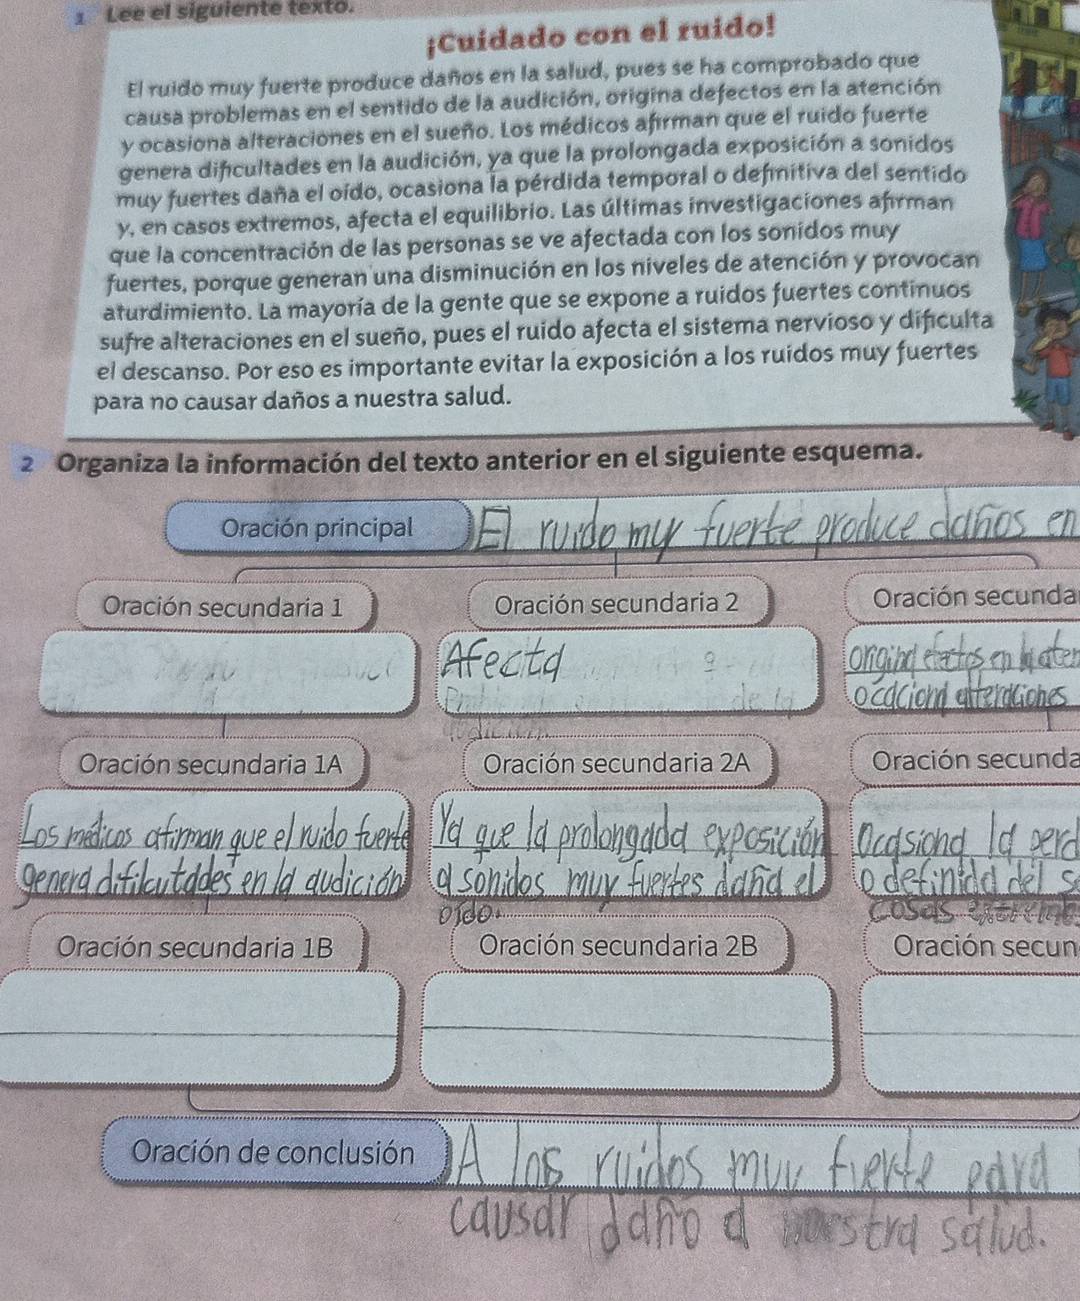 1 Lee el siguiente texto.
¡Cuidado con el ruido!
El ruido muy fuerte produce daños en la salud, pues se ha comprobado que
causa problemas en el sentido de la audición, origina defectos en la atención
y ocasiona alteraciones en el sueño. Los médicos afirman que el ruido fuerte
genera dificultades en la audición, ya que la prolongada exposición a sonidos
muy fuertes daña el oído, ocasiona la pérdida temporal o definitiva del sentido
y, en casos extremos, afecta el equilibrio. Las últimas investigaciones afirman
que la concentración de las personas se ve afectada con los sonidos muy
fuertes, porque generan una disminución en los niveles de atención y provocan
aturdimiento. La mayoría de la gente que se expone a ruidos fuertes continuos
sufre alteraciones en el sueño, pues el ruido afecta el sistema nervioso y dificulta
el descanso. Por eso es importante evitar la exposición a los ruidos muy fuertes
para no causar daños a nuestra salud.
2 Organiza la información del texto anterior en el siguiente esquema.
Oración principal
El ruido muy fuerte produce daños en
Oración secundaria 1
Oración secundaria 2
Afecta
de la
audición
Oración secunda
en la aten
ocaciona alteraciones
Oración secundaria 1A
Los médicos afirman que el ruido fuerte
genera dificutades en la audición
Oración secundaria 2A
Ya que la prolongada exposición
a sonidos muy fuertes daña el
oído.
Oración secunda
Ocasiona la perd
o definida del s
cosas
Oración secundaria 1B
Oración secundaria 2B
Oración secun
Oración de conclusión
A los ruidos muy fuerte para
causar daño a nuestra salud.